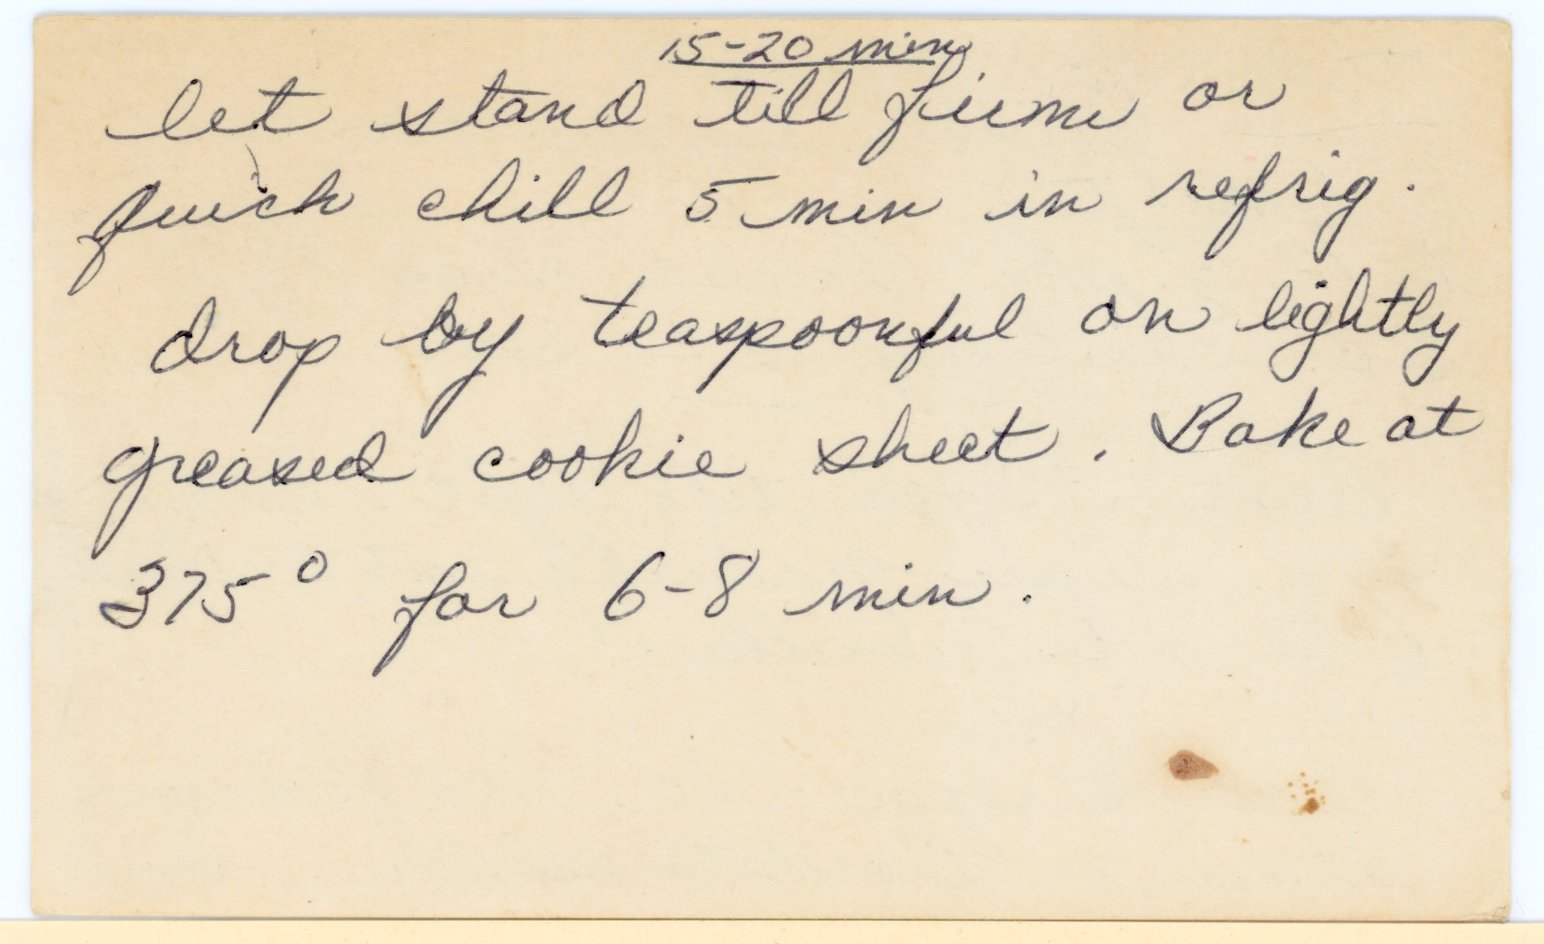 15-20 min
let stand till firm or
quick chill 5 min in refrig.
drop by teaspoonful on lightly
greased cookie sheet. Bake at
375° for 6-8 min.